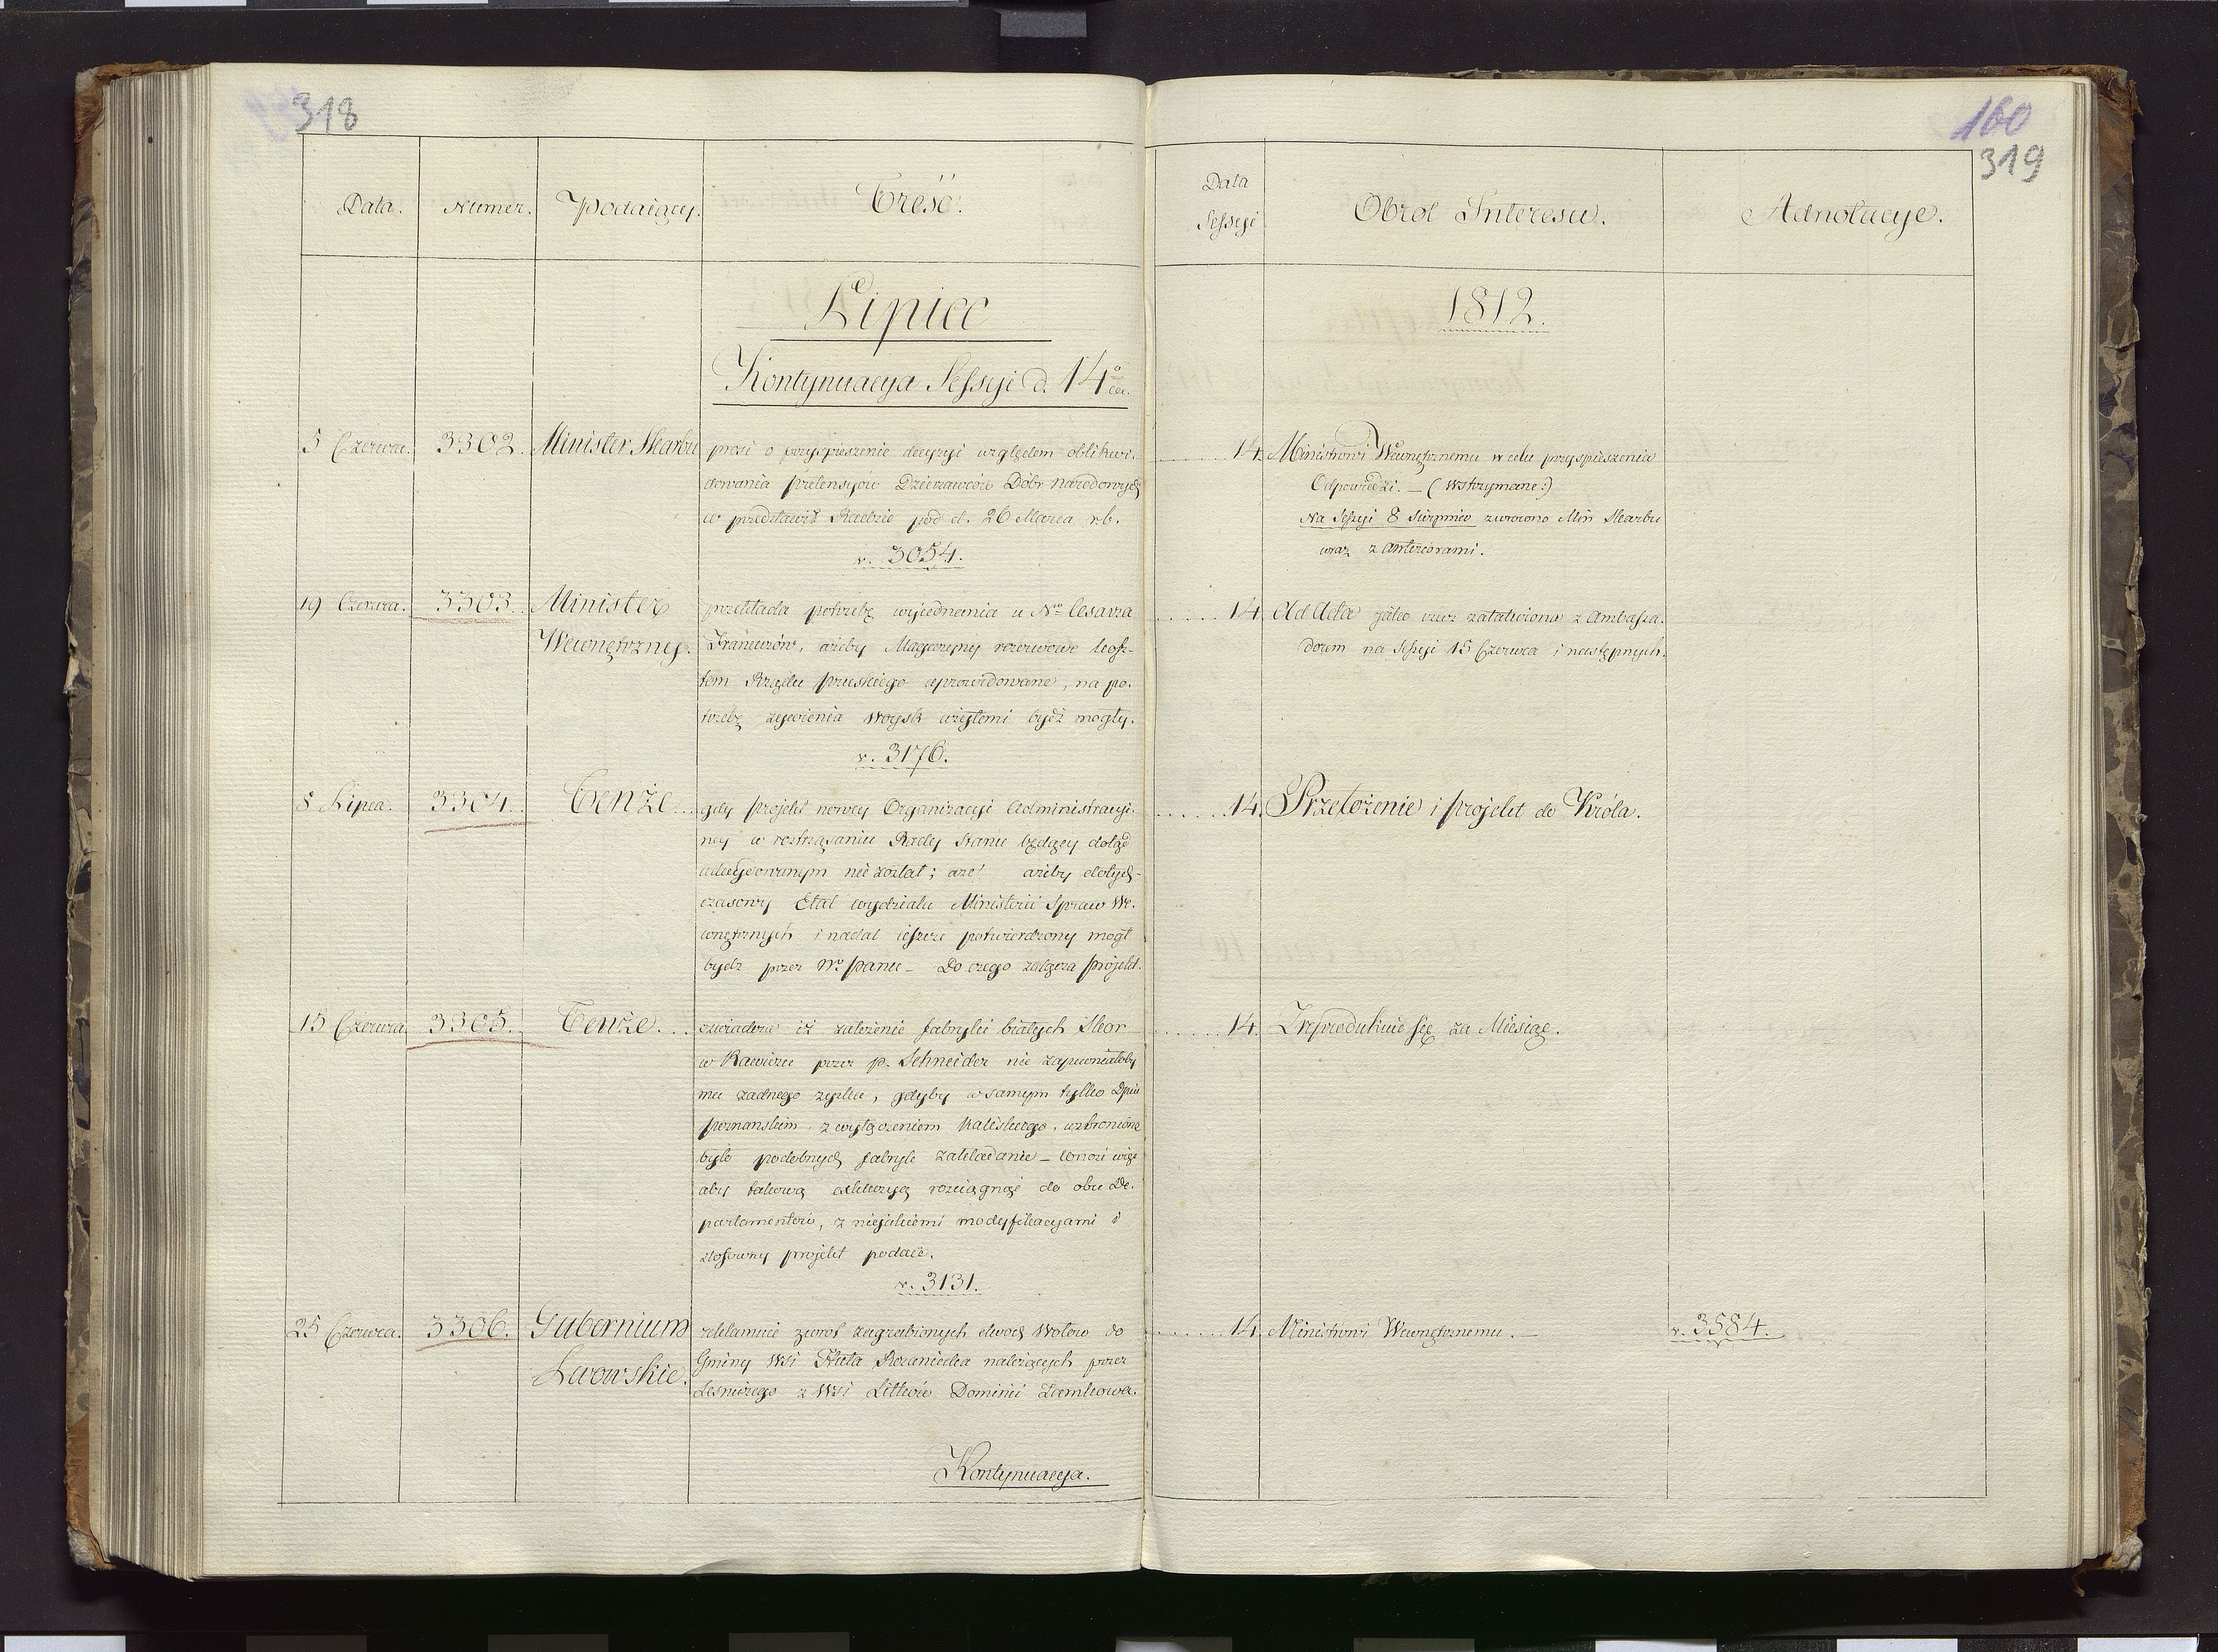 318
Data.
Numer.
Podaiący.
Treść.
Lipiec
Kontynuacya Sessyi d. 14º ca.
5 Czerwca.
3302.
Minister Skarbu
prosi o przyspieszenie decyzyi względem oblikwi-
dowania pretensyów Dzierzawców Dóbr Narodowych
w przedstawie Radzie pod d. 26 Marca r.b.
v. 3054.
19 Czerwca.
3303.
Minister
Wewnętrzny.
przekłada potrzebę wyiednania u No Cesarza
Francuzów, ażeby Magazyny rezerwowe kosz-
tem Rządu pruskiego aprowidowane, na po-
trzebę żywienia Woysk wziętemi bydź mogły.
v. 3176.
8 Lipca.
3304.
Tenże
gdy projekt nowey Organizacyi Administracyi-
ney w roztrząsaniu Rady Stanu będący dotąd
zadecydowanym nie został; ażeby dotych-
czasowy Etat wydziału Ministerii Spraw We-
wnętrznych i nadal ieszcze potwierdzony mógł
bydź przez No Pana – Do czego załącza projekt.
15 Czerwca
3305.
Tenże.
oświadcza iż założenie fabryki białych Skor
w Rawiczu przez p. Schneider nie zapewniałoby
mu żadnego zysku, gdyby w samym tylko Dpcie
poznanskim, z wyłączeniem Kaliskiego, wzbronione
było podobnych fabryk zakładanie – wnosi więc
aby takową exkluzyą rozciągnąć do obu De-
partamentów, z nieiakiemi modyfikacyami i
stosowny projekt podaie.
v. 3131.
25 Czerwca.
3306.
Gubernium
Lwowskie.
reklamuie zwrot zagrabionych dwoch Wołow do
Gminy Wsi Huta Rożaniecka należących przez
Lesniczego z Wsi Litków Dominii Zamkowa.
Kontynuacya.
160
319
Data
Sessyi
Obrot Interesu.
Adnotacye.
1812.
14.
Ministrowi Wewnętrznemu w celu przyspieszenia
Odpowiedzi. – (Wstrzymane:)
Na Sessyi 8 Sierpnia zwrocono Min Skarbu
wraz z Anteriorami.
14
Ad Acta jako iuż załatwiono z Ambassa-
dorem na Sessyi 15 Czerwca i następnych.
14.
Przełożenie i projekt do Króla.
14.
Zreprodukuie się za Miesiąc.
14.
Ministrowi Wewnętrznemu. –
v. 3584.